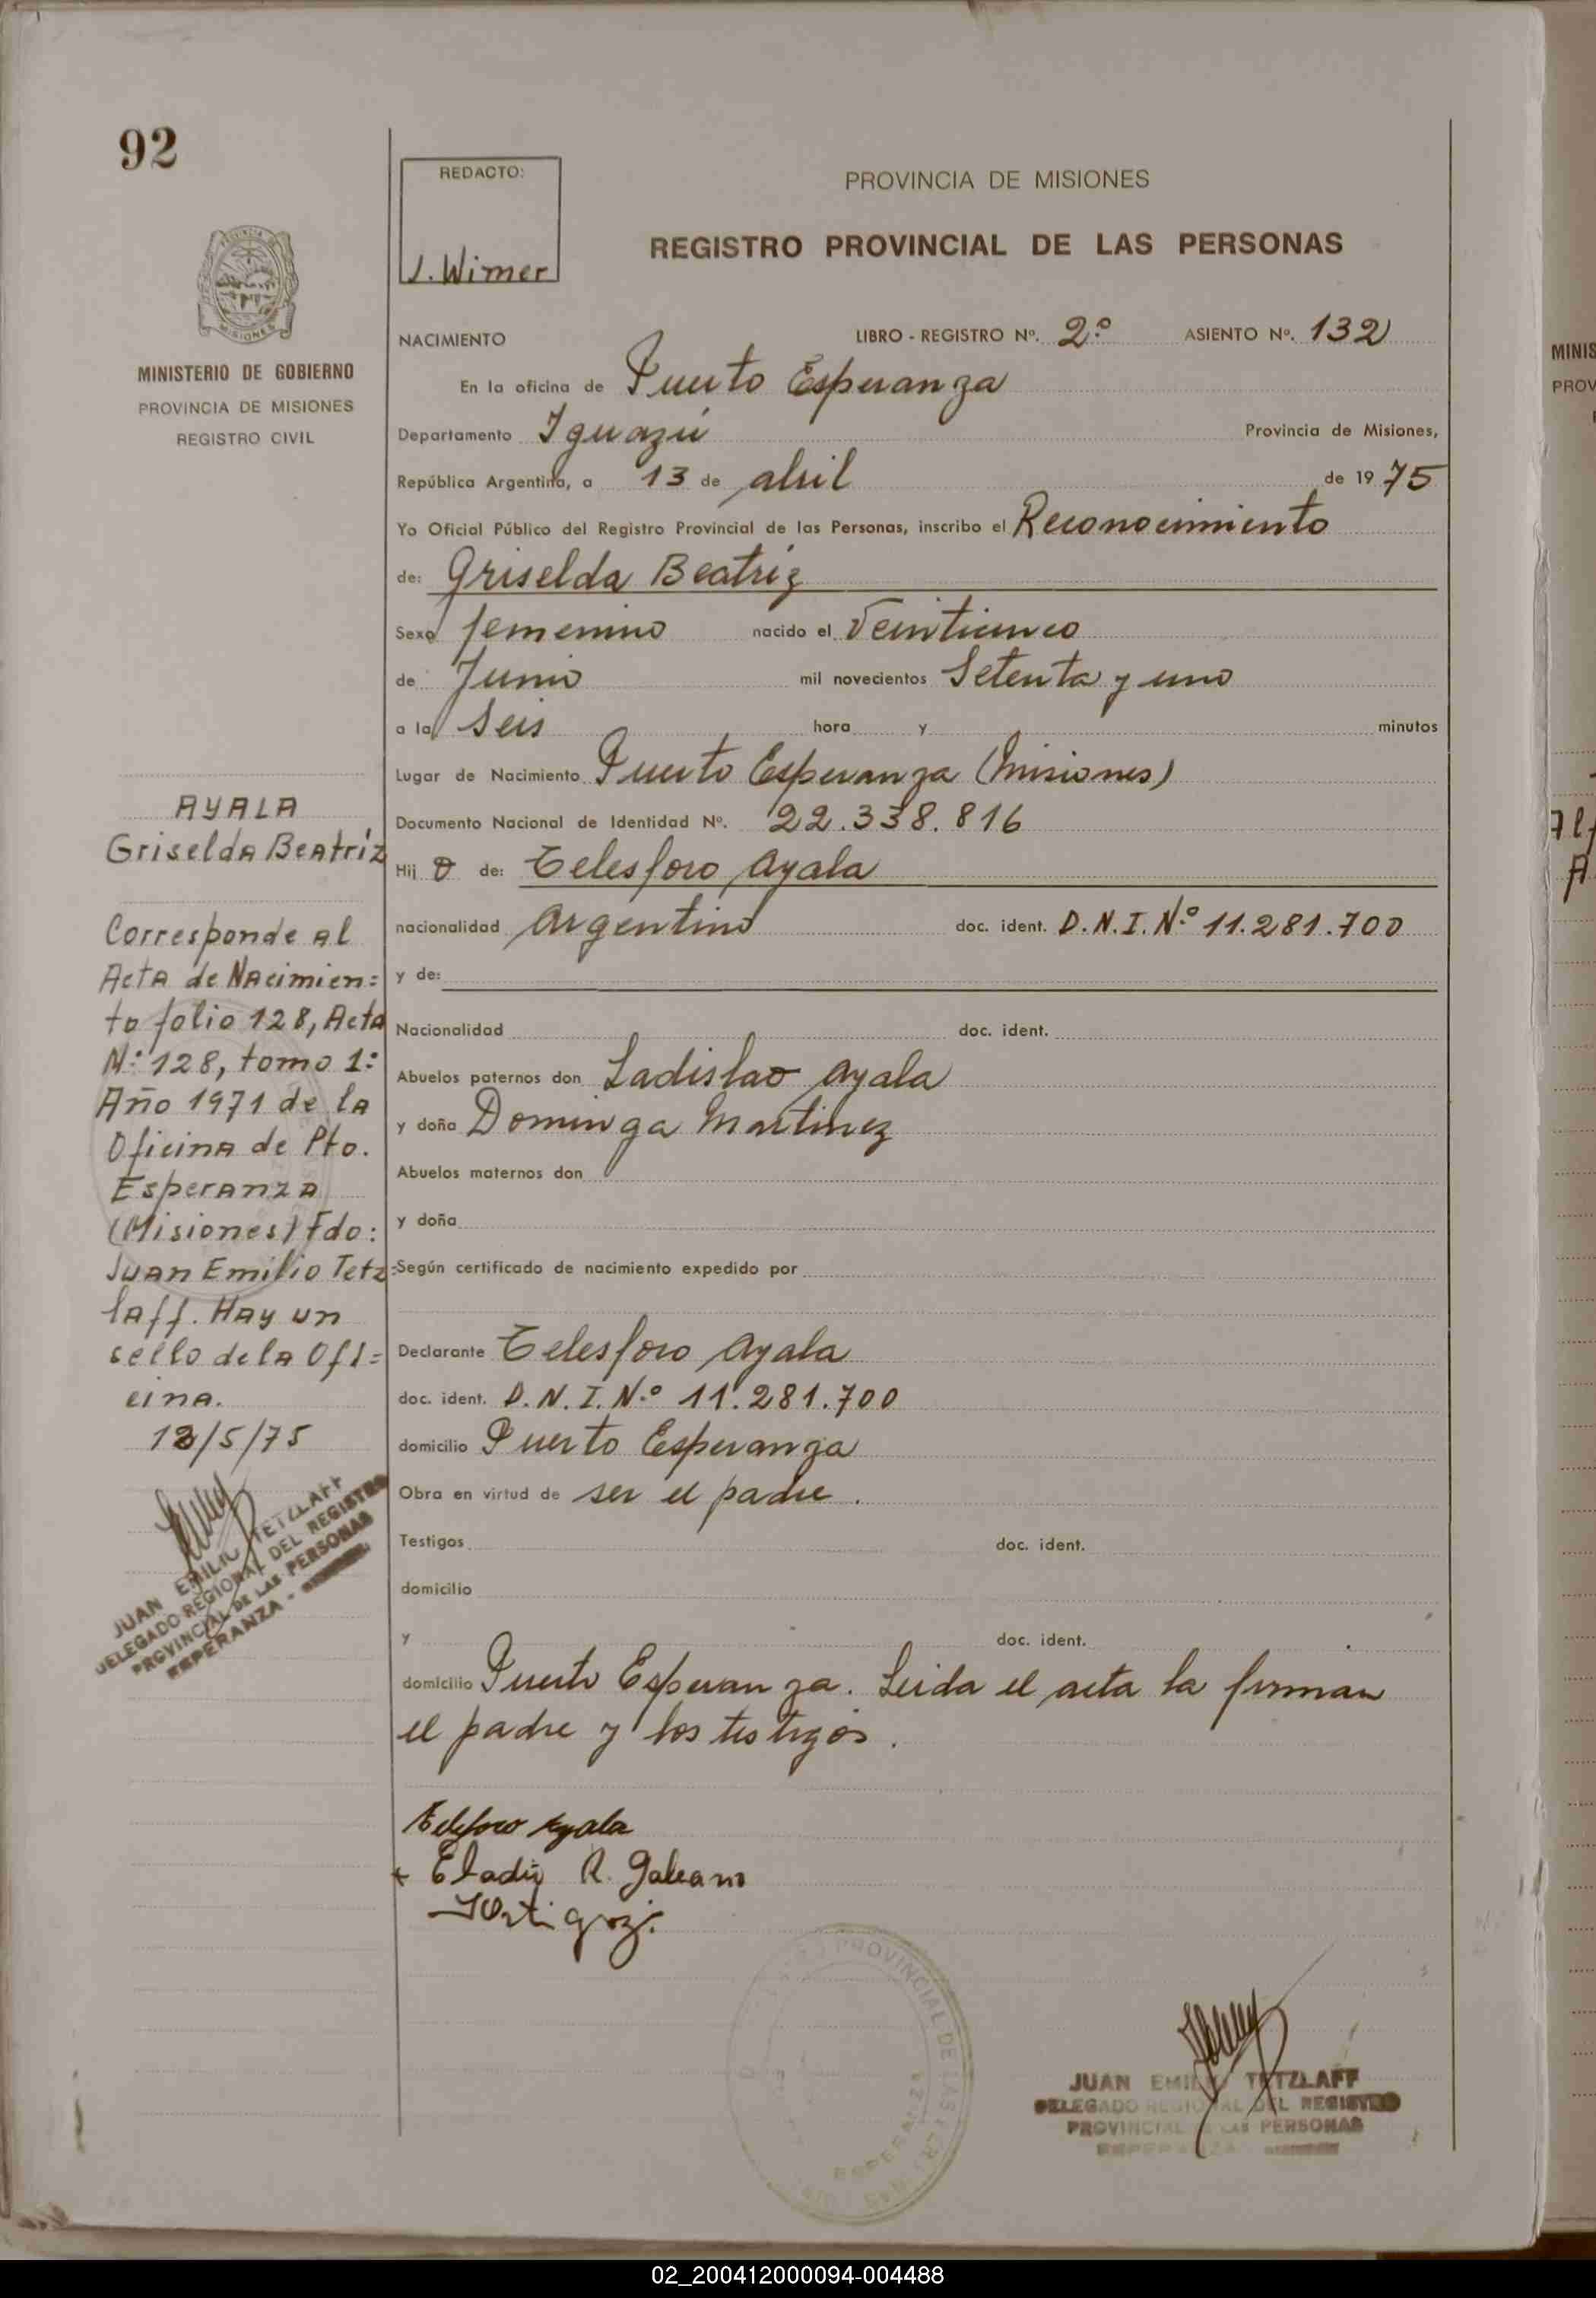 92
REDACTO:
J. Wimer
PROVINCIA DE MISIONES
REGISTRO PROVINCIAL DE LAS PERSONAS
MINISTERIO DE GOBIERNO
PROVINCIA DE MISIONES
REGISTRO CIVIL
NACIMIENTO LIBRO - REGISTRO Nº. 2º ASIENTO Nº. 132
En la oficina de Puerto Esperanza
Departamento Iguazú Provincia de Misiones,
República Argentina, a 13 de abril de 1975
Yo Oficial Público del Registro Provincial de las Personas, inscribo el Reconocimiento
de: Griselda Beatriz
Sexo femenino nacido el Veinticinco
de Junio mil novecientos Setenta y uno
a la seis hora y minutos
Lugar de Nacimiento Puerto Esperanza (Misiones)
Documento Nacional de Identidad Nº. 22.338.816
Hij de: Telesforo Ayala
nacionalidad Argentino doc. ident. D.N.I. Nº 11.281.700
y de:
Nacionalidad doc. ident.
Abuelos paternos don Ladislao Ayala
y doña Dominga Martinez
Abuelos maternos don
y doña
Según certificado de nacimiento expedido por
Declarante Telesforo Ayala
doc. ident. D.N.I. Nº 11.281.700
domicilio Puerto Esperanza
Obra en virtud de ser el padre.
Testigos doc. ident.
domicilio
y doc. ident.
domicilio Puerto Esperanza. Leida el acta la firman
el padre y los testigos.
Telesforo Ayala
Eladio R. Galeano
AYALA
Griselda Beatriz
Corresponde al
Acta de Nacimien=
to folio 128, Acta
Nº 128, tomo 1º
Año 1971 de la
Oficina de Pto.
Esperanza
(Misiones) Fdo:
Juan Emilio Tetz=
laff. Hay un
sello de la Ofi=
cina.
13/5/75
JUAN EMILIO TETZLAFF
DELEGADO REGIONAL DEL REGISTRO
PROVINCIAL DE LAS PERSONAS
ESPERANZA -
JUAN EMILIO TETZLAFF
DELEGADO REGIONAL DEL REGISTRO
PROVINCIAL DE LAS PERSONAS
ESPERANZA
PROVINCIAL DE LAS PERS
ESPERANZA
MINIS
PROV
02_200412000094-004488